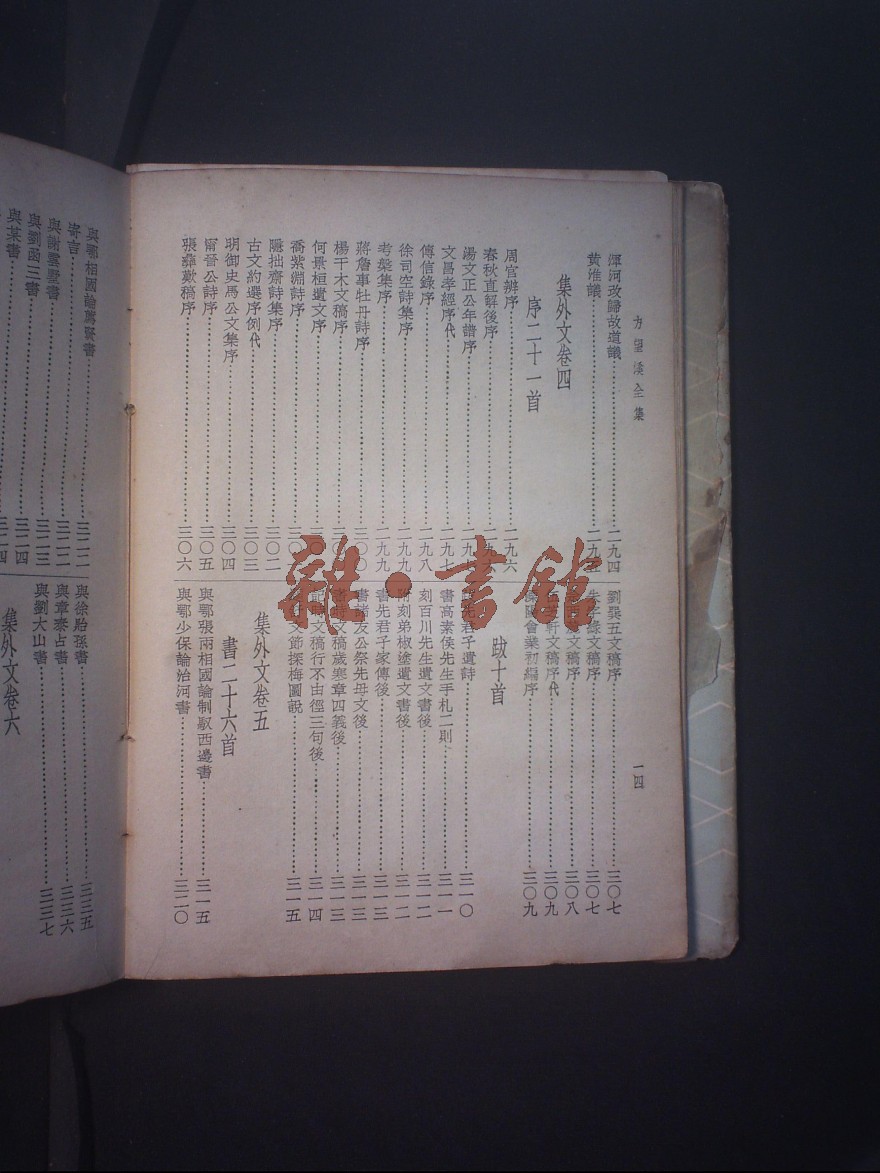 方望溪全集
一四
渾河改歸故道議……二九四
黃淮議……二九五
集外文卷四
序二十一首
周官辨序……二九六
春秋直解後序……二九六
湯文正公年譜序……二九
文昌孝經序代……二九七
傳信錄序……二九八
徐司空詩集序……二九九
考槃集序……二九九
蔣詹事牡丹詩序……三〇〇
楊千木文稿序……三〇
何景桓遺文序……三〇
喬紫淵詩序……三〇
隱拙齋詩集序……三〇二
古文約選序例代……三〇三
明御史馬公文集序……三〇四
甯晉公詩序……三〇五
張彝歎稿序……三〇六
劉巽五文稿序……三〇七
字錄文稿序……三〇七
文稿序……三〇八
軒文稿序代……三〇九
會業初編序……三〇九
跋十首
先君子遺詩……三一〇
書高素侯先生手札二則……三一一
刻百川先生遺文書後……三一二
附刻弟椒塗遺文書後……三一二
書先君子家傳後……三一三
書諸友公祭先母文後……三一三
書時文稿歲寒章四義後……三一三
文稿行不由徑三句後……三一四
文節探梅圖說……三一五
集外文卷五
書二十六首
與鄂張兩相國論制馭西邊書……三一五
與鄂少保論治河書……三二〇
與鄂相國論薦賢書……三二二
寄言……三二二
與謝雲墅書……三二三
與劉函三書……三二四
與某書……三二四
與徐貽孫書……三三五
與章泰占書……三三六
與劉大山書……三三七
集外文卷六
雜·書館